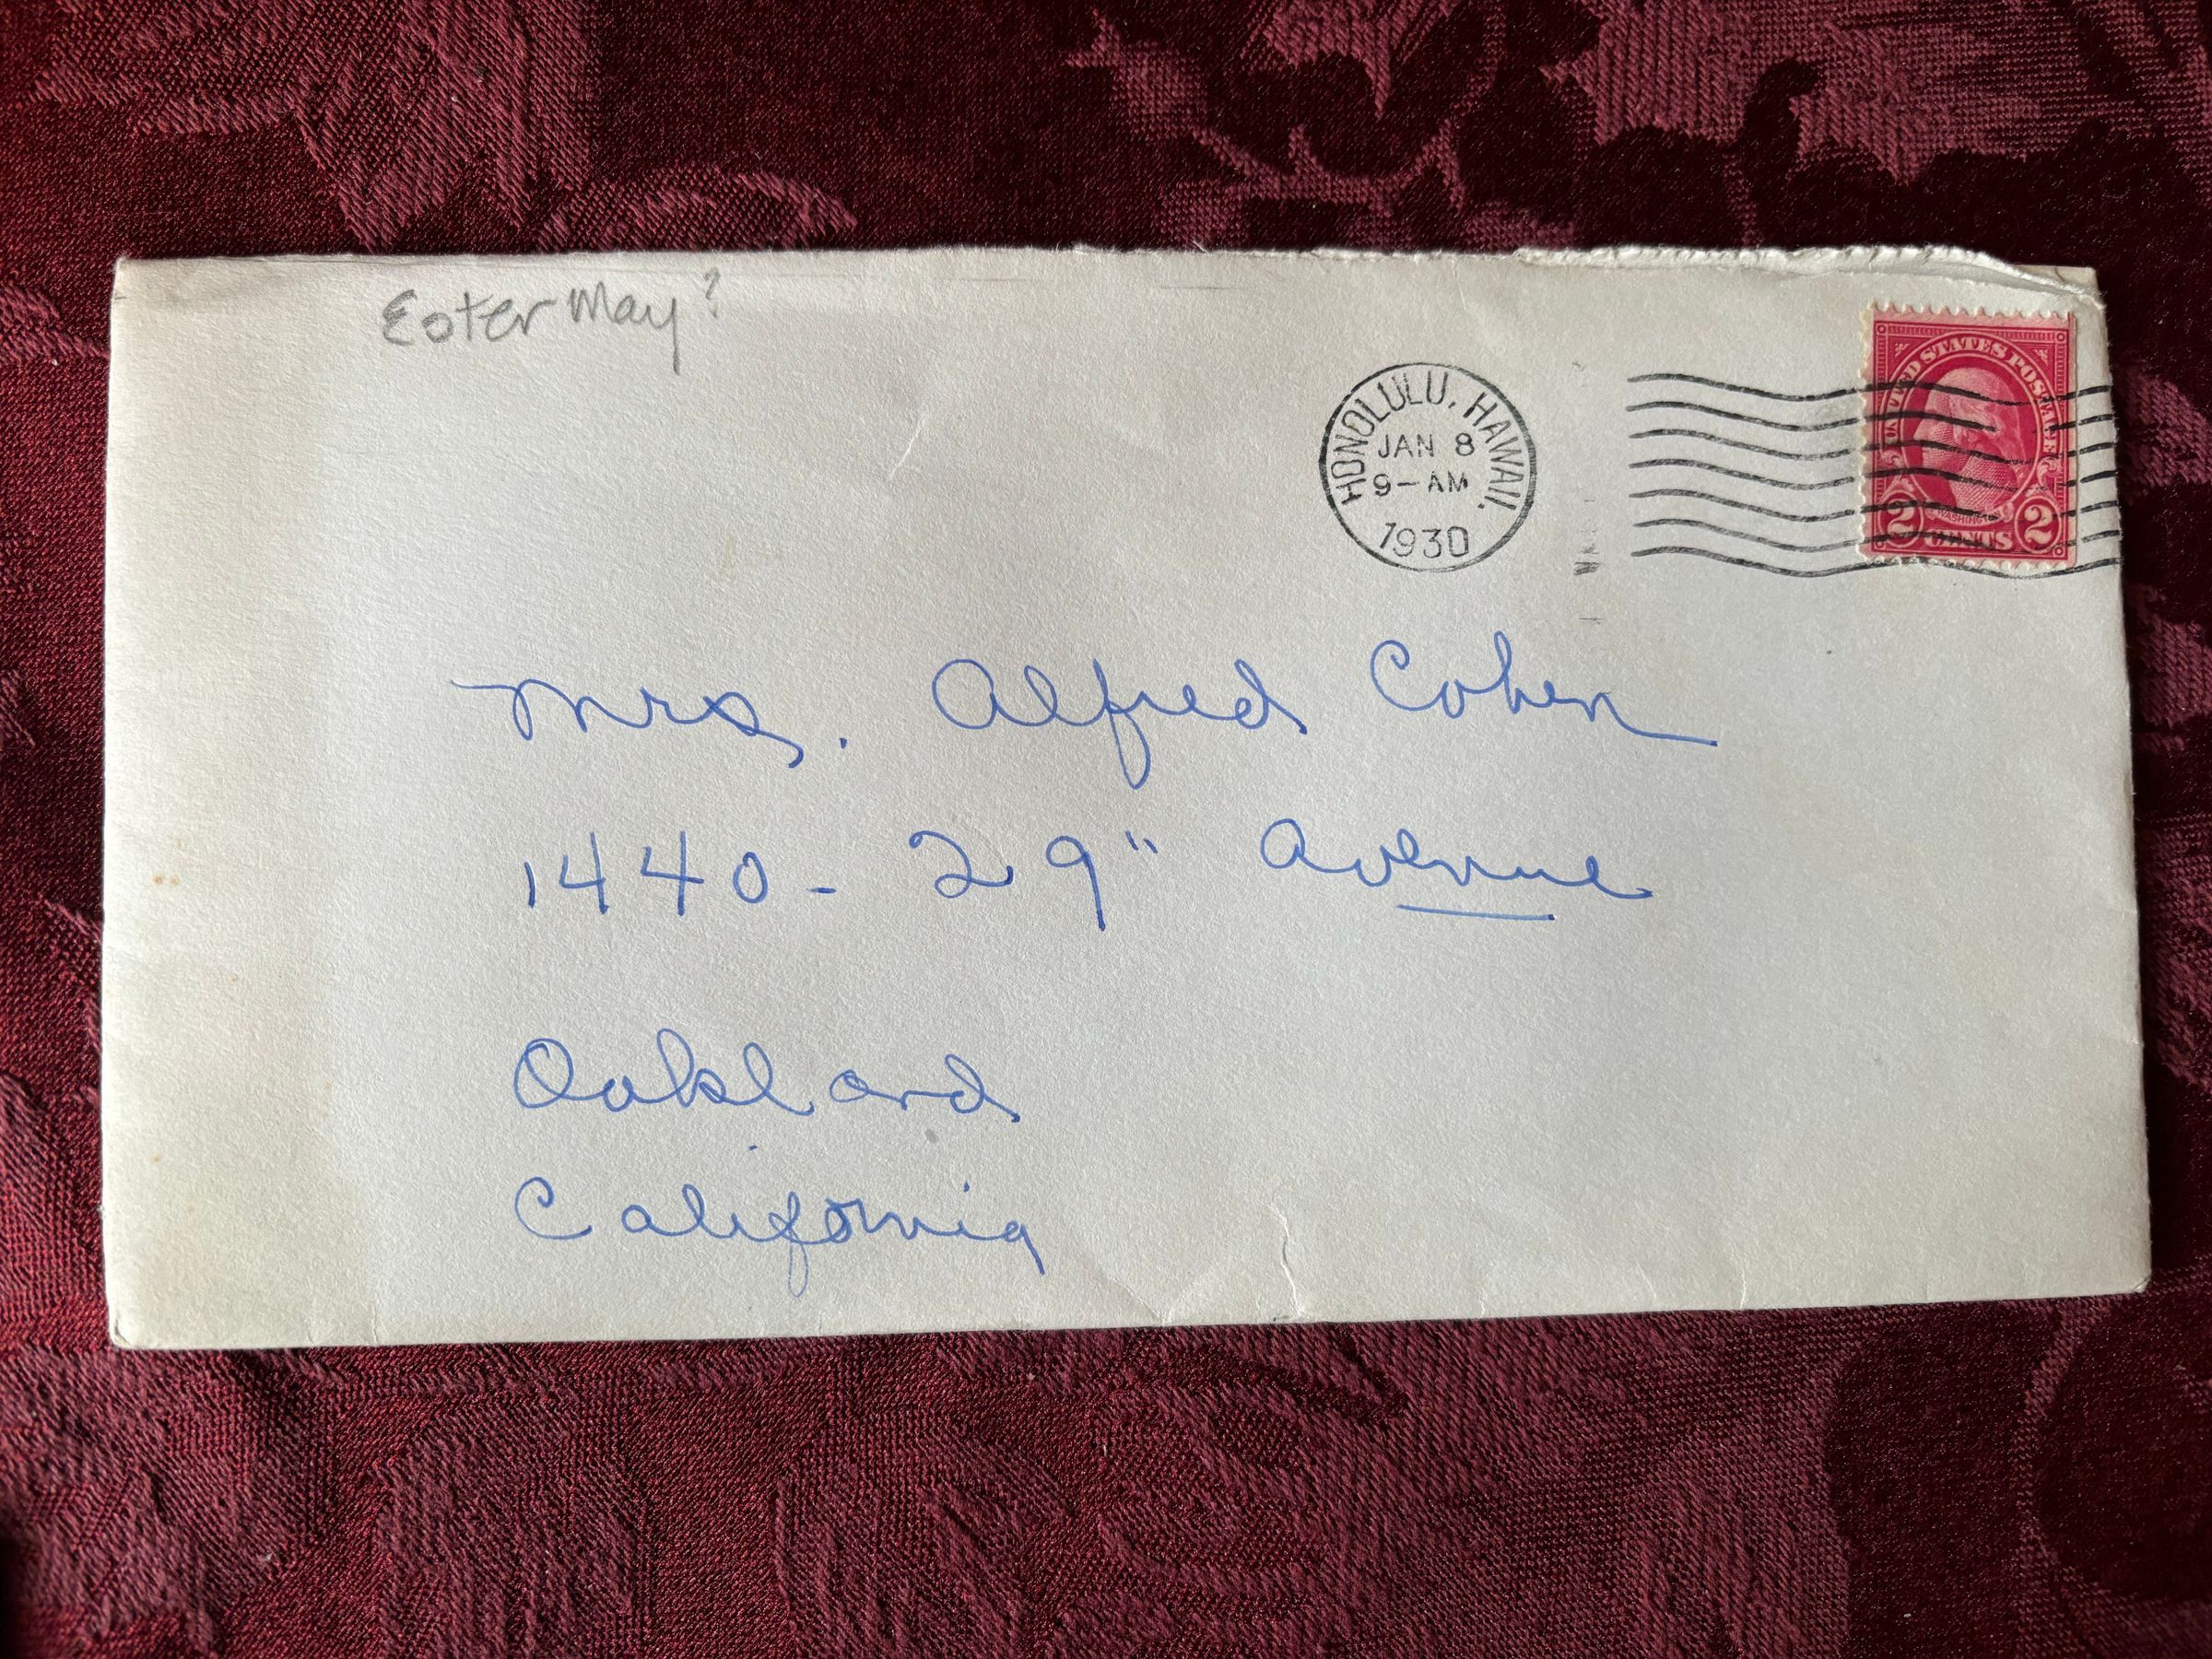 Eoter May?
HONOLULU, HAWAII.
JAN 8
9-AM
1930
UNITED STATES POSTAGE
WASHINGTON
2 CENTS 2
Mrs. Alfred Cohen
1440 - 29" Avenue
Oakland
California